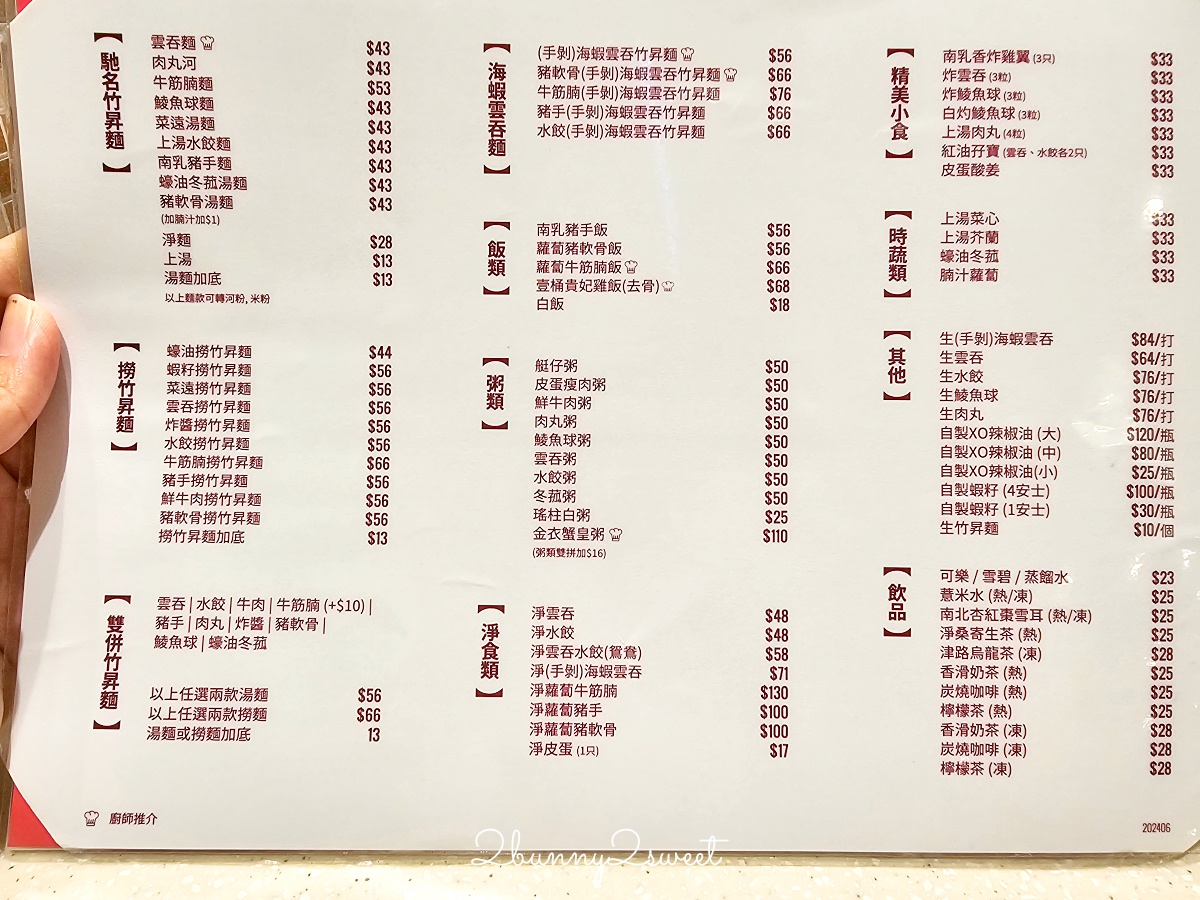 【馳名竹昇麵】
雲吞麵 $43
肉丸河 $43
牛筋腩麵 $53
鯪魚球麵 $43
菜遠湯麵 $43
上湯水餃麵 $43
南乳豬手麵 $43
蠔油冬菰湯麵 $43
豬軟骨湯麵 $43
(加腩汁加$1)
淨麵 $28
上湯 $13
湯麵加底 $13
以上麵款可轉河粉, 米粉
【撈竹昇麵】
蠔油撈竹昇麵 $44
蝦籽撈竹昇麵 $56
菜遠撈竹昇麵 $56
雲吞撈竹昇麵 $56
炸醬撈竹昇麵 $56
水餃撈竹昇麵 $56
牛筋腩撈竹昇麵 $66
豬手撈竹昇麵 $56
鮮牛肉撈竹昇麵 $56
豬軟骨撈竹昇麵 $56
撈竹昇麵加底 $13
【雙併竹昇麵】
雲吞 | 水餃 | 牛肉 | 牛筋腩 (+$10) |
豬手 | 肉丸 | 炸醬 | 豬軟骨 |
鯪魚球 | 蠔油冬菰
以上任選兩款湯麵 $56
以上任選兩款撈麵 $66
湯麵或撈麵加底 13
廚師推介
【海蝦雲吞麵】
(手剝)海蝦雲吞竹昇麵 $56
豬軟骨(手剝)海蝦雲吞竹昇麵 $66
牛筋腩(手剝)海蝦雲吞竹昇麵 $76
豬手(手剝)海蝦雲吞竹昇麵 $66
水餃(手剝)海蝦雲吞竹昇麵 $66
【飯類】
南乳豬手飯 $56
蘿蔔豬軟骨飯 $56
蘿蔔牛筋腩飯 $66
壹桶貴妃雞飯(去骨) $68
白飯 $18
【粥類】
艇仔粥 $50
皮蛋瘦肉粥 $50
鮮牛肉粥 $50
肉丸粥 $50
鯪魚球粥 $50
雲吞粥 $50
水餃粥 $50
冬菰粥 $50
瑤柱白粥 $25
金衣蟹皇粥 $110
(粥類雙拼加$16)
【淨食類】
淨雲吞 $48
淨水餃 $48
淨雲吞水餃(鴛鴦) $58
淨(手剝)海蝦雲吞 $71
淨蘿蔔牛筋腩 $130
淨蘿蔔豬手 $100
淨蘿蔔豬軟骨 $100
淨皮蛋 (1只) $17
【精美小食】
南乳香炸雞翼 (3只) $33
炸雲吞 (3粒) $33
炸鯪魚球 (3粒) $33
白灼鯪魚球 (3粒) $33
上湯肉丸 (4粒) $33
紅油孖寶 (雲吞、水餃各2只) $33
皮蛋酸姜 $33
【時蔬類】
上湯菜心 $33
上湯芥蘭 $33
蠔油冬菰 $33
腩汁蘿蔔 $33
【其他】
生(手剝)海蝦雲吞 $84/打
生雲吞 $64/打
生水餃 $76/打
生鯪魚球 $76/打
生肉丸 $76/打
自製XO辣椒油 (大) $120/瓶
自製XO辣椒油 (中) $80/瓶
自製XO辣椒油(小) $25/瓶
自製蝦籽 (4安士) $100/瓶
自製蝦籽 (1安士) $30/瓶
生竹昇麵 $10/個
【飲品】
可樂 / 雪碧 / 蒸餾水 $23
薏米水 (熱/凍) $25
南北杏紅棗雪耳 (熱/凍) $25
淨桑寄生茶 (熱) $25
津路烏龍茶 (凍) $28
香滑奶茶 (熱) $25
炭燒咖啡 (熱) $25
檸檬茶 (熱) $25
香滑奶茶 (凍) $28
炭燒咖啡 (凍) $28
檸檬茶 (凍) $28
202406
2bunny2sweet